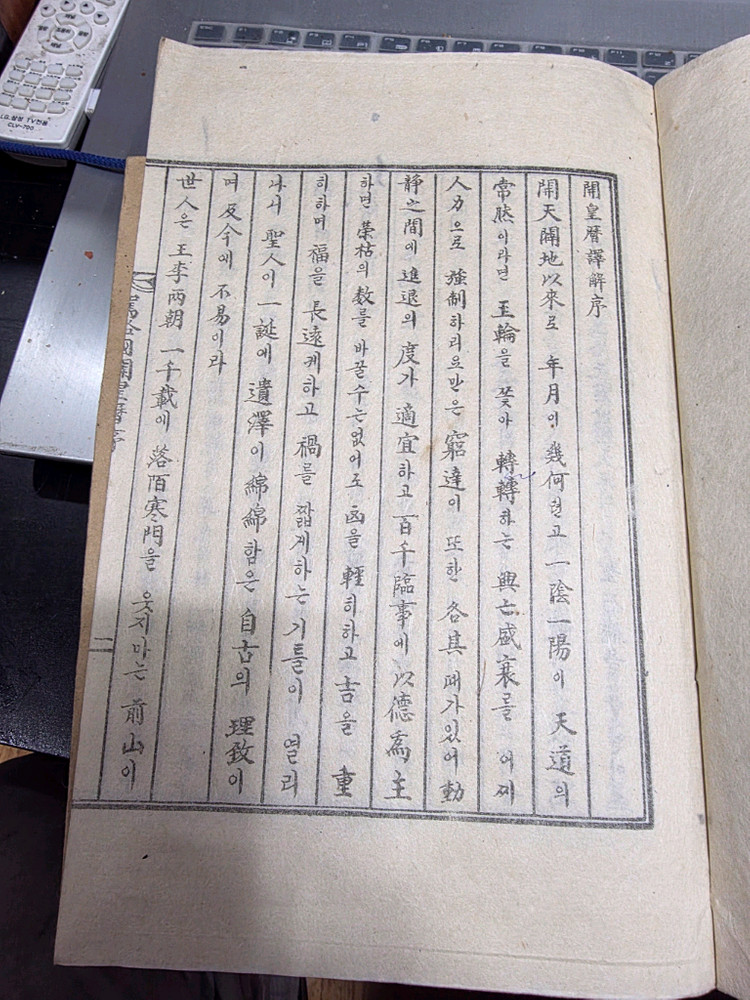 開皇曆譯解序
開天闢地以來로 年月이 幾何런고 一陰一陽이 天道의
常然이라면 五輪을 쫓아 轉轉하는 興亡盛衰를 어찌
人力으로 强制하리요만은 窮達이 또한 各其 때가있어 動
靜之間에 進退의 度가 適宜하고 百千臨事에 以德爲主
하면 榮枯의 數를 바꿀수는없어도 凶을 輕히하고 吉을 重
히하며 福을 長遠케하고 禍를 짧게하는 기틀이 열리
나니 聖人이 一誕에 遺澤이 綿綿함은 自古의 理致이
며 反今에 不易이라
世人은 王李两朝 一千載에 落陌寒門을 웃지마는 前山이
開皇曆序
二
LG.삼성 TV전용
CLV-700